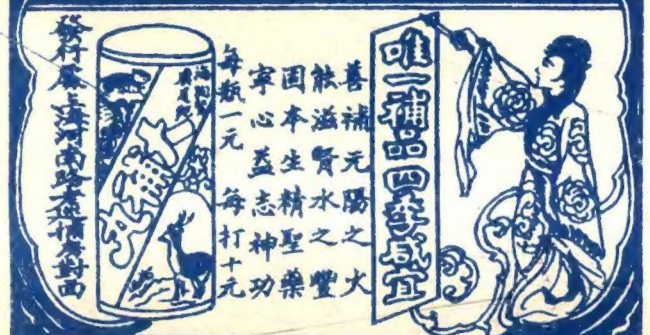 唯一補品四季咸宜
善補元陽之火
能滋腎水之豐
固本生精聖藥
寧心益志神功
每瓶一元 每打十元
發行處上海河南路老巡捕房對面